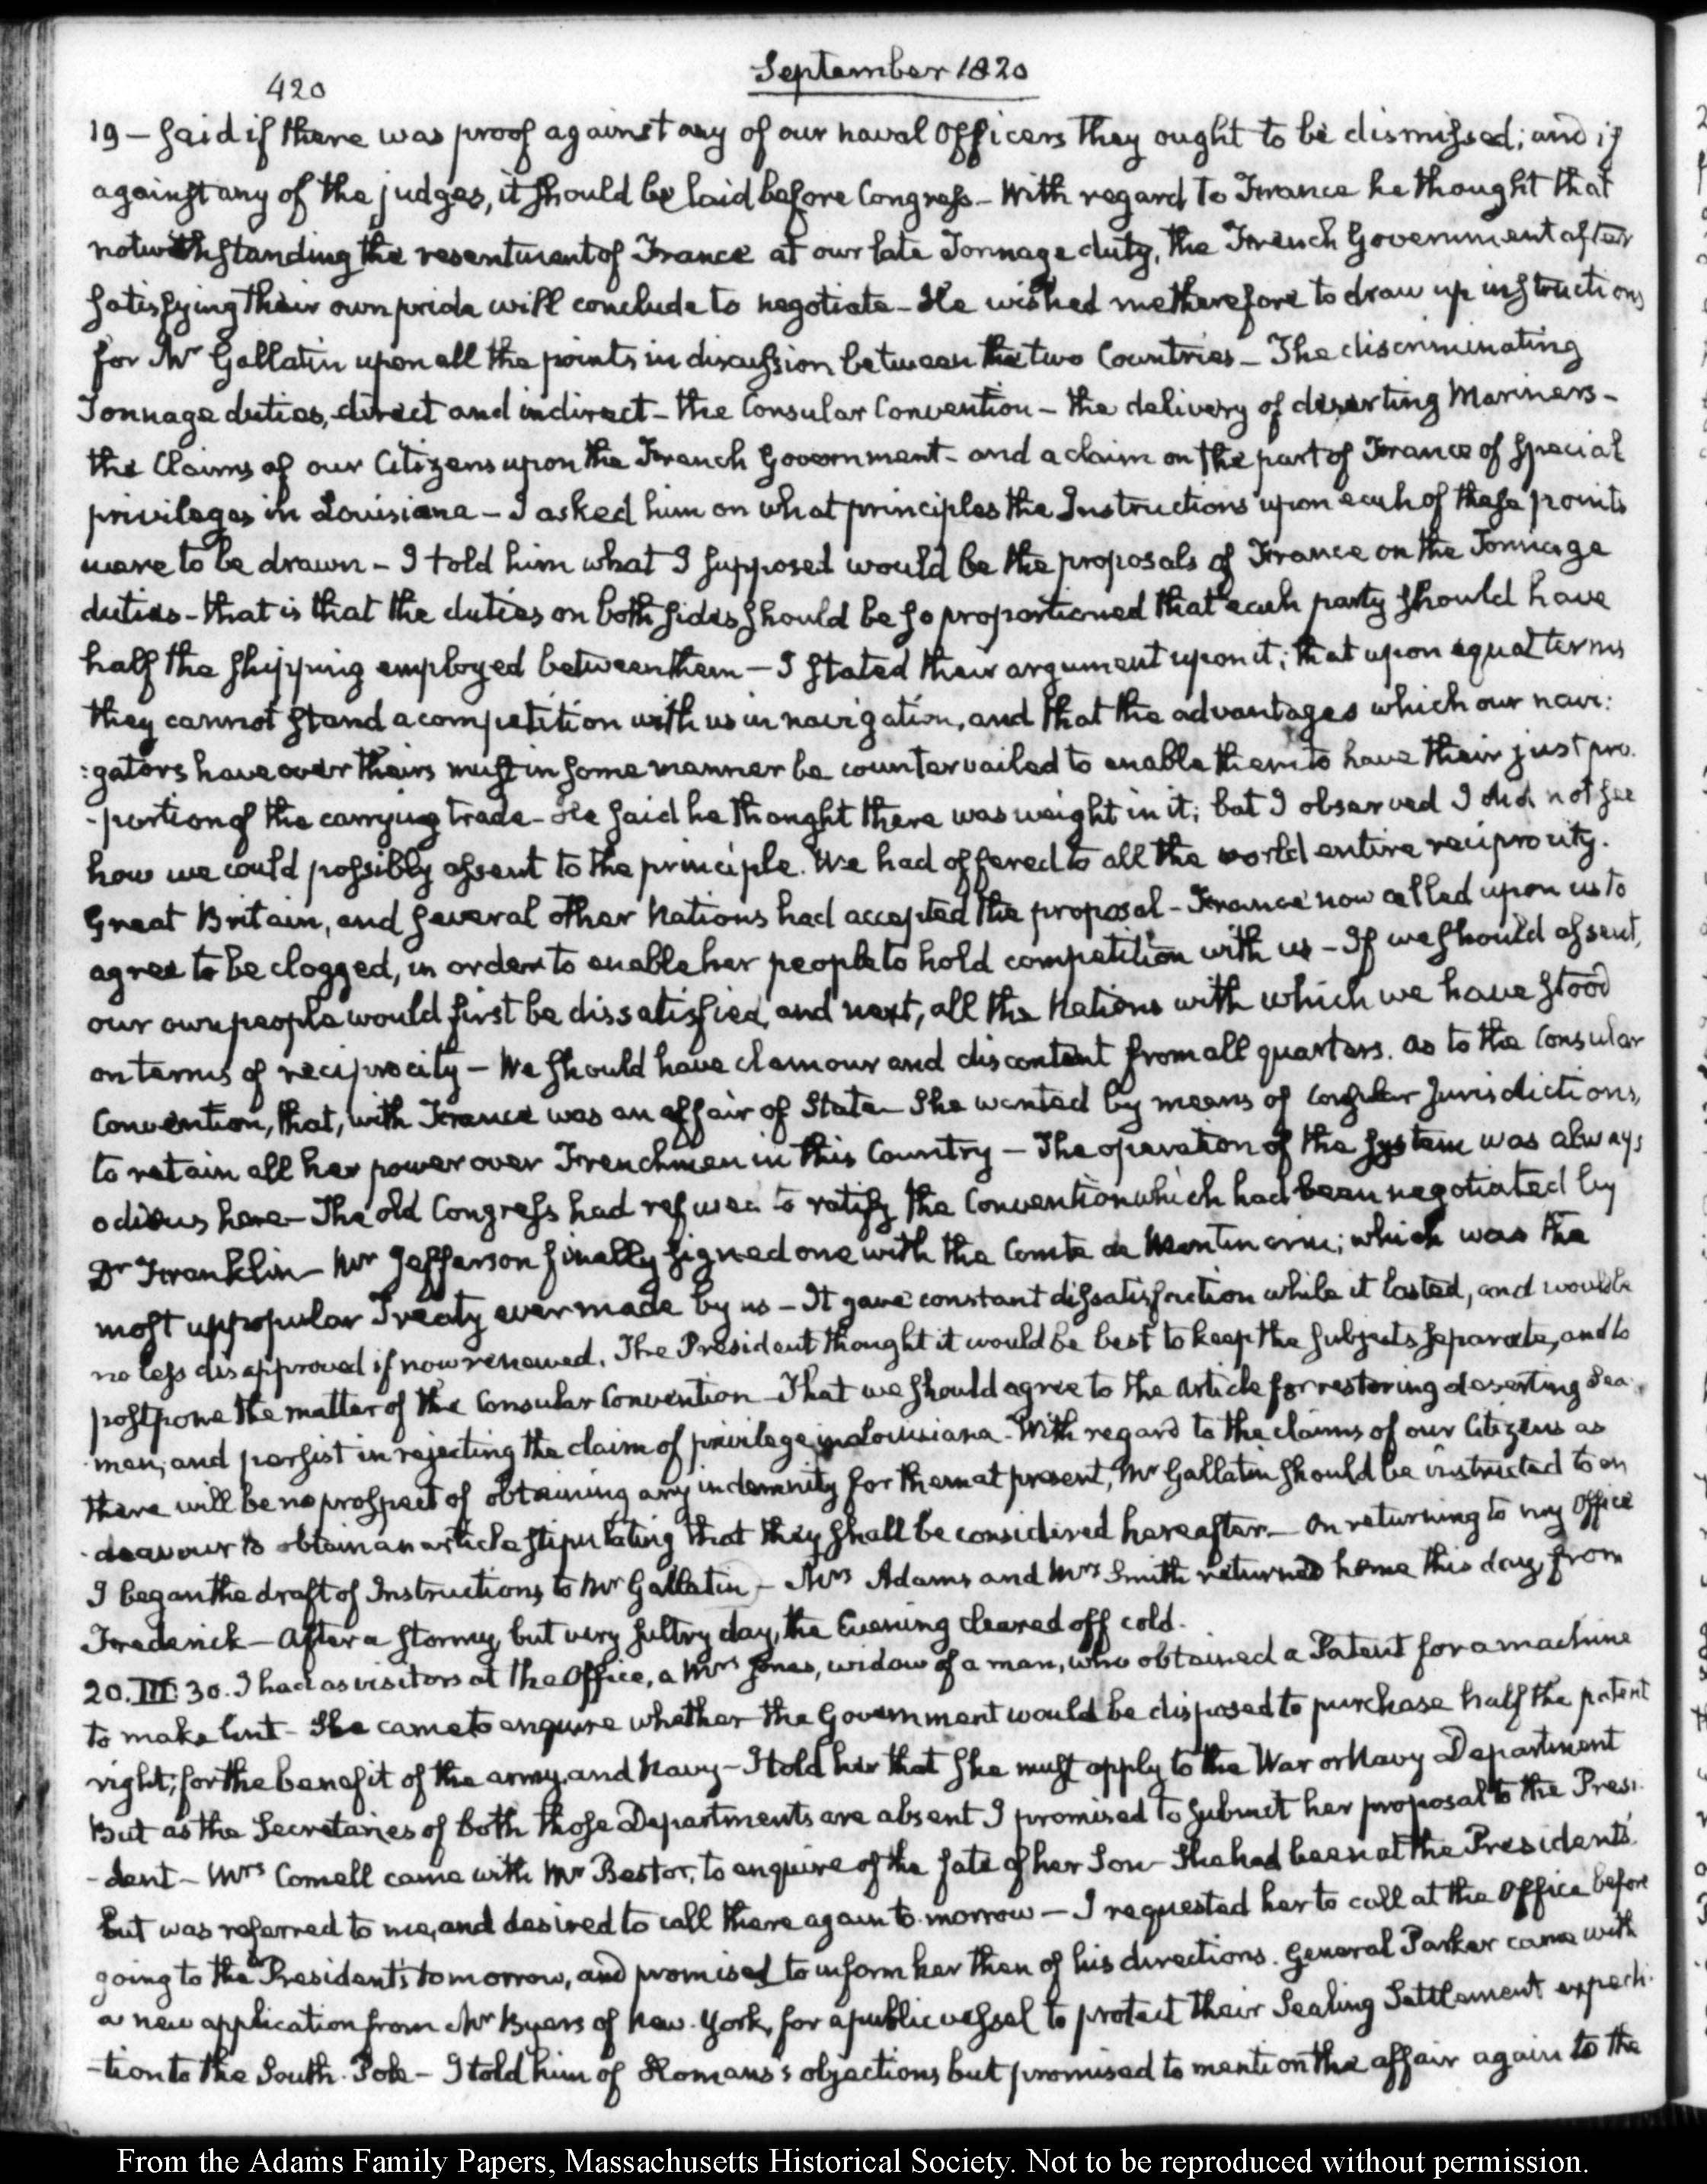 420
September 1820
19 — said if there was proof against any of our naval Officers they ought to be dismissed; and if
against any of the judges, it should be laid before Congress — With regard to France he thought that
notwithstanding the resentment of France at our late Tonnage duty, the French Government after
satisfying their own pride will conclude to negotiate — He wished me therefore to draw up instructions
for Mr Gallatin upon all the points in discussion between the two Countries — The discriminating
Tonnage duties, direct and indirect — the Consular Convention — the delivery of deserting Mariners —
the Claims of our Citizens upon the French Government — and a claim on the part of France of special
privileges in Louisiana — I asked him on what principles the Instructions upon each of these points
were to be drawn — I told him what I supposed would be the proposals of France on the Tonnage
duties — that is that the duties on both sides should be so proportioned that each party should have
half the shipping employed between them — I stated their argument upon it; that upon equal terms
they cannot stand a competition with us in navigation, and that the advantages which our navi:
:gators have over theirs must in some manner be countervailed to enable them to have their just pro-
-portion of the carrying trade — He said he thought there was weight in it; but I observed I did not see
how we could possibly assent to the principle. We had offered to all the world entire reciprocity.
Great Britain, and several other Nations had accepted the proposal — France now called upon us to
agree to be clogged, in order to enable her people to hold competition with us — If we should assent,
our own people would first be dissatisfied, and next, all the Nations with which we have stood
on terms of reciprocity — We should have clamour and discontent from all quarters. As to the Consular
Convention, that, with France was an affair of State — She wanted by means of Consular Jurisdictions,
to retain all her power over Frenchmen in this Country — The operation of the system was always
odious here — The old Congress had refused to ratify the Convention which had been negotiated by
Dr Franklin — Mr Jefferson finally signed one with the Comte de Montmorin; which was the
most unpopular Treaty ever made by us — It gave constant dissatisfaction while it lasted, and would be
no less disapproved if now renewed. The President thought it would be best to keep the subjects separate, and to
postpone the matter of the Consular Convention — That we should agree to the Article for restoring deserting Sea-
-men, and persist in rejecting the claim of privilege in Louisiana — With regard to the claims of our Citizens as
there will be no prospect of obtaining any indemnity for them at present, Mr Gallatin should be instructed to en
-deavour to obtain an article stipulating that they shall be considered hereafter — On returning to my Office
I began the draft of Instructions to Mr Gallatin — Mrs Adams and Mrs Smith returned home this day from
Frederick — After a stormy, but very sultry day, the Evening cleared off cold.
20. III: 30. I had as visitors at the Office, a Mrs Jones, widow of a man, who obtained a Patent for a machine
to make lint — She came to enquire whether the Government would be disposed to purchase half the patent
right, for the benefit of the army and Navy — I told her that she must apply to the War or Navy Department
But as the Secretaries of both those Departments are absent I promised to submit her proposal to the Presi-
-dent — Mrs Cornell came with Mr Bestor, to enquire of the fate of her Son — She had been at the President's
but was referred to me, and desired to call there again to-morrow — I requested her to call at the Office before
going to the President's tomorrow, and promised to inform her then of his directions. General Parker came with
a new application from Mr Byers of New-York, for a public vessel to protect their Sealing Settlement expedi-
-tion to the South-Pole — I told him of Romans's objections but promised to mention the affair again to the
From the Adams Family Papers, Massachusetts Historical Society. Not to be reproduced without permission.